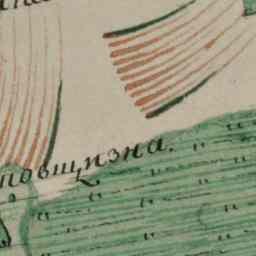 повщизна.